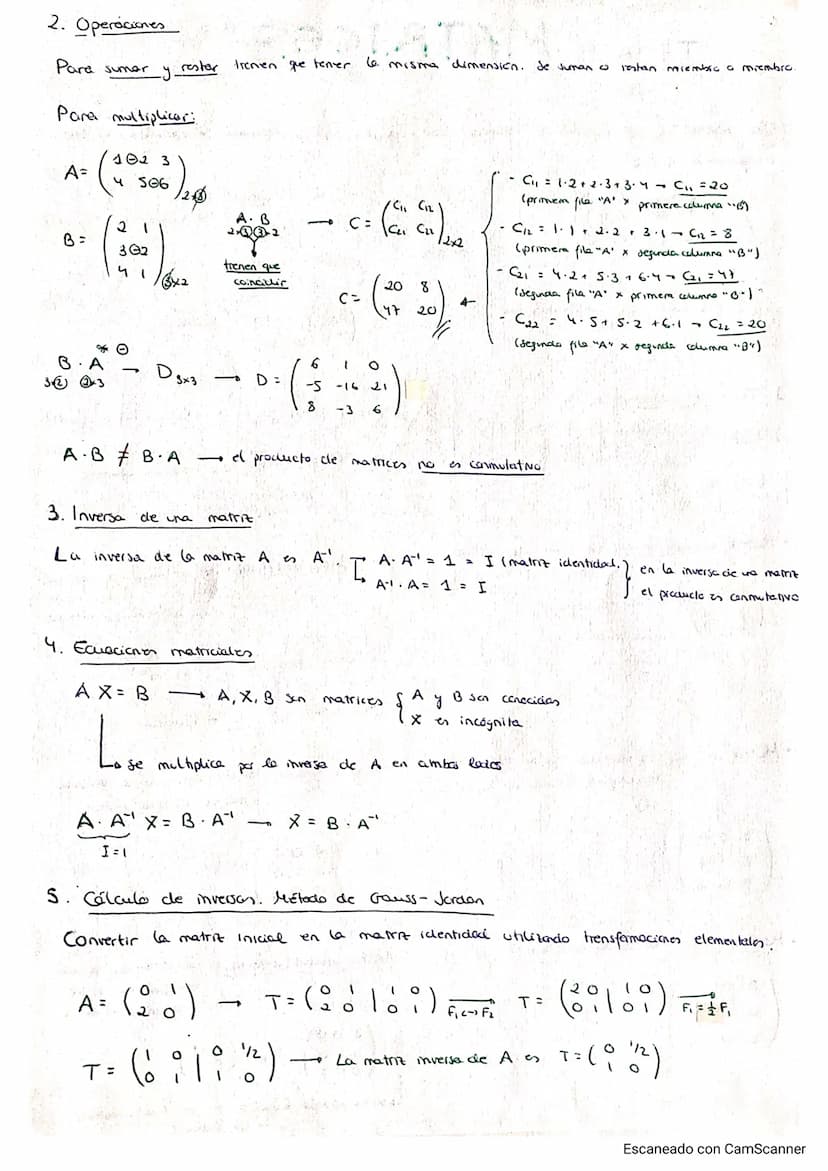 2. Operaciones
Para sumar y restar tienen que tener la misma dimensión. Se suman o restan miembro a miembro.
Para multiplicar:
A = ( 1 0 2 3 / 4 5 0 6 ) 2x3
B = ( 2 1 / 3 0 2 / 4 1 ) 3x2
A · B
2x3 3x2
tienen que
coincidir
→ C = ( C11 C12 / C21 C22 ) 2x2
C = ( 20 8 / 47 20 ) ←
- C11 = 1·2 + 2·3 + 3·4 → C11 = 20
(primera fila "A" x primera columna "B")
- C12 = 1·1 + 2·2 + 3·1 → C12 = 8
(primera fila "A" x segunda columna "B")
- C21 = 4·2 + 5·3 + 6·4 → C21 = 47
(segunda fila "A" x primera columna "B")
- C22 = 4·5 + 5·2 + 6·1 → C22 = 20
(segunda fila "A" x segunda columna "B")
* ⊖
B · A → D 3x3 → D = ( 6 1 0 / -5 -16 21 / 8 -3 6 )
3x2 2x3
A·B ≠ B·A → el producto de matrices no es conmutativo
3. Inversa de una matriz
La inversa de la matriz A es A⁻¹. A·A⁻¹ = 1 = I (matriz identidad.) } en la inversa de una matriz
A⁻¹·A = 1 = I } el producto es conmutativo
4. Ecuaciones matriciales
A X = B → A, X, B son matrices { A y B son conocidas
X es incógnita
↳ se multiplica por la inversa de A en ambos lados
A · A⁻¹ X = B · A⁻¹ → X = B · A⁻¹
I = 1
5. Cálculo de inversas. Método de Gauss-Jordan
Convertir la matriz inicial en la matriz identidad utilizando transformaciones elementales.
A = ( 0 1 / 2 0 ) → T = ( 0 1 | 1 0 / 2 0 | 0 1 ) F₁ ↔ F₂ T = ( 2 0 | 1 0 / 0 1 | 0 1 ) F₁ = ½ F₁
T = ( 1 0 | 0 1/2 / 0 1 | 1 0 ) → La matriz inversa de A es T = ( 0 1/2 / 1 0 )
Escaneado con CamScanner